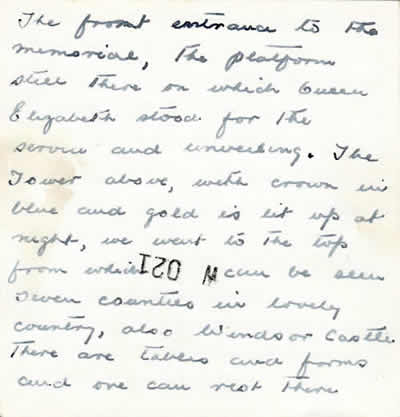 The front entrance to the
memorial, the platform
still there on which Queen
Elizabeth stood for the
service and unveiling. The
Tower above, with crown in
blue and gold is lit up at
night, we went to the top
from which can be seen
seven counties in lovely
country, also Windsor Castle
There are tables and forms
and one can rest there